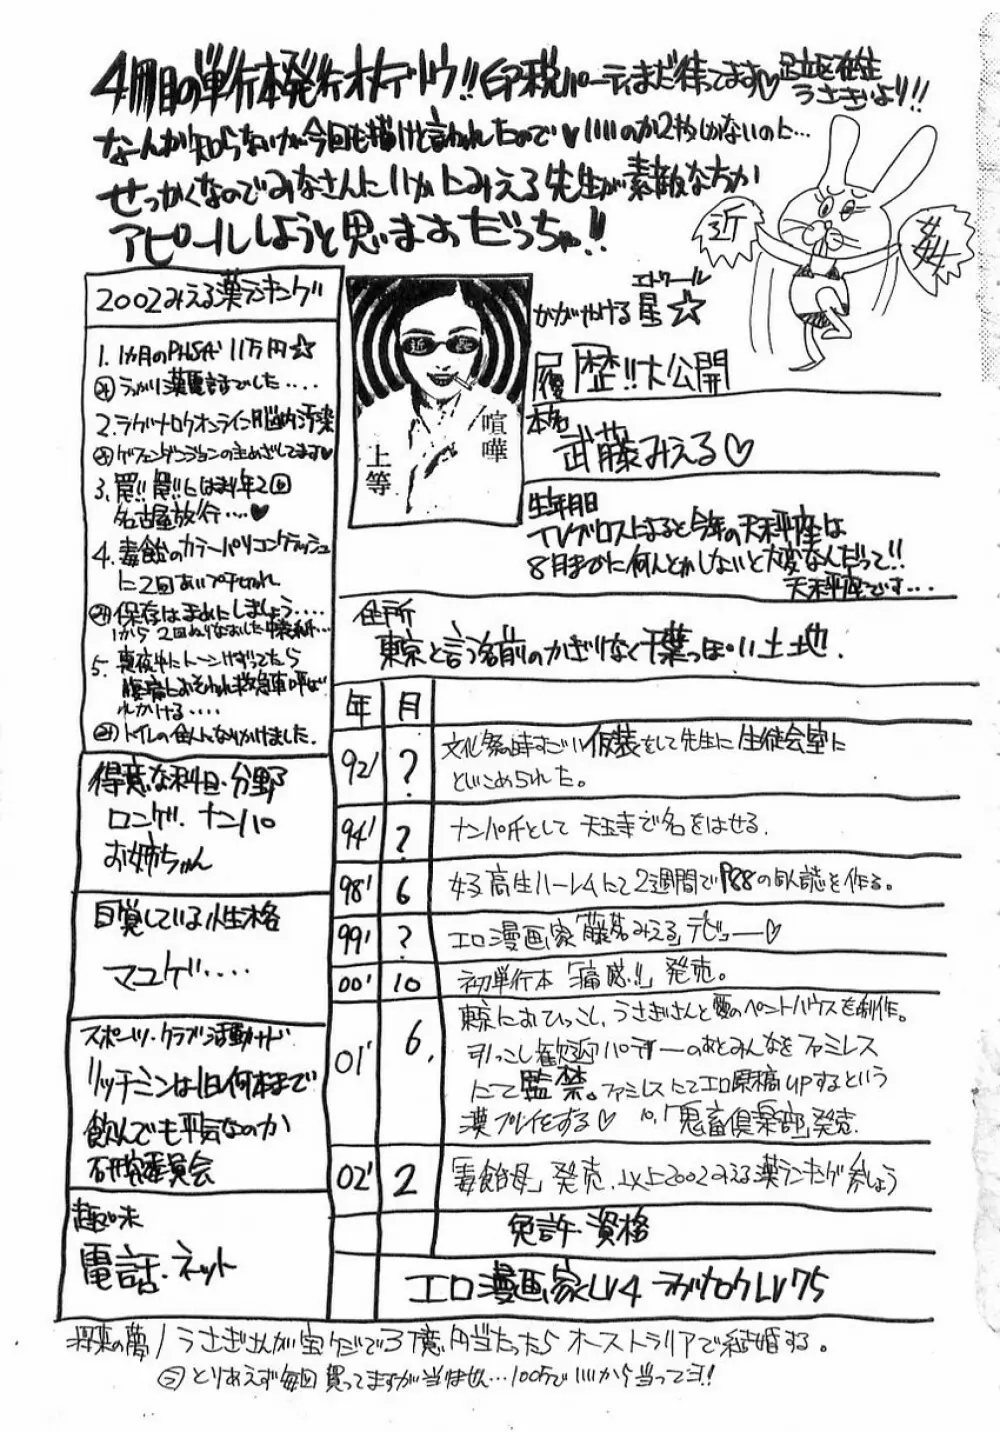 4冊目の単行本発行オメデトウ!!印税パーティまだ待ってます♡足立区在住
うさぎより!!
なーんか知らないが今回も描けと言われたので♡いいのか2枚しかないのに…
せっかくなのでみなさんにいかにみえる先生が素敵な方か
アピールしようと思いますだっちゃ!!
近
姦
2002みえる漢ランキング
1. 1カ月のPHS代 11万円☆
うっかり漢電話でした....
2.ラグナロクオンライン脳内汚染
ゲフェンダンジョンの主めざしてます♥
3.罠!!罠!!にはまり年2回
名古屋放行....♥
4.毒飴のカラーパソコンクラッシュ
に2回あいプチ切れ
保存はまめにしましょう....
1から2回ぬりなおした
5.真夜中にトーンけずってたら
腹痛におそわれ救急車呼ば
れかける....
トイレの住人になりかけました.
得意な科目・分野
ロンゲ.ナンパ
お姉ちゃん
自覚している性格
マユゲ....
スポーツ・クラブ活動など
リッチミンは1日何本まで
飲んでも平気なのか
研究委員会
趣味
電話.ネット
近 姦
喧嘩
上等
エトワール
かがやける星☆
履歴!!大公開
本名
武藤みえる♡
生年月日
TVブロスによると今年の天秤座は
8月までに何んとかしないと大変なんだって!!
天秤座です...
住所
東京と言う名前のかぎりなく千葉っぽい土地.
年 月
92' ? 文化祭の時すごい仮装をして先生に生徒会室に
とじこめられた。
94' ? ナンパ氏として天王寺で名をはせる.
98' 6 女子高生ハーレムにて2週間でP88の同人誌を作る。
99' ? エロ漫画家「藤若みえる」デビュー♡
00' 10 初単行本「痛感!!」発売。
01' 6. 東京におひっこし,うさぎさんと愛のペントハウスを制作。
引っこし歓迎パーティーのあとみんなをファミレス
にて監禁。ファミレスにてエロ原稿UPするという
漢プレイをする♡ 10.「鬼畜倶楽部」発売.
02' 2 「毒飴母」発売.以上2002みえる漢ランキング参しょう
免許・資格
エロ漫画家LV4 ラグナロクLV75
将来の夢/うさぎさんが宝クジで3億円当たったらオーストラリアで結婚する。
とりあえず毎回買ってますが当りません...100万でいいから当ってヨ!!